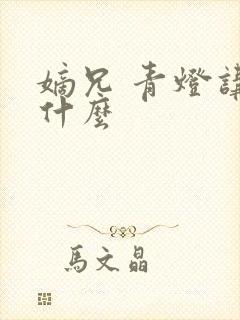 嫡兄 青燈講
什麼
馬文晶